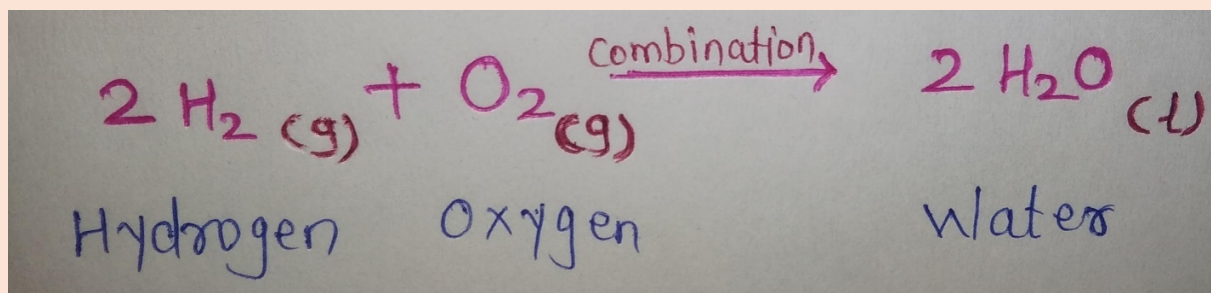 2 H₂ (g) + O₂ (g) Combination → 2 H₂O (l)
Hydrogen Oxygen Water